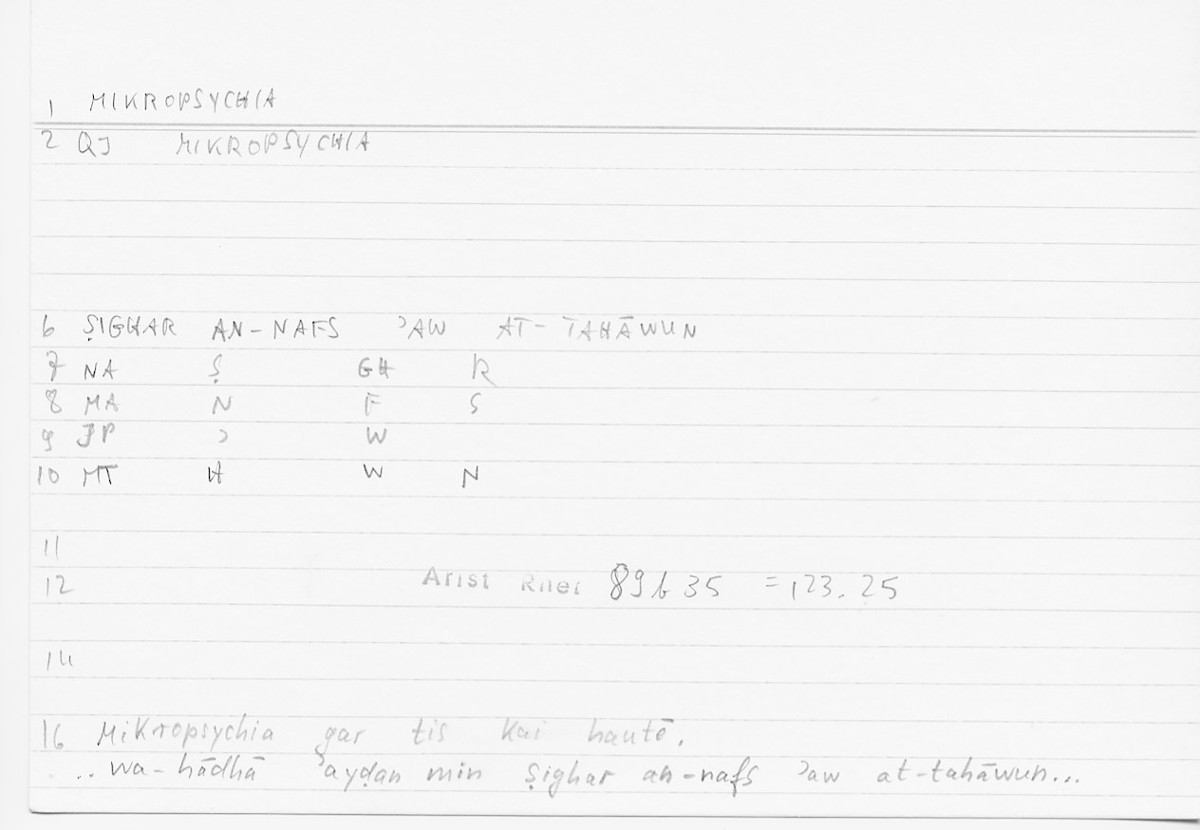 1 MIKROPSYCHIA
2 QJ MIKROPSYCHIA
6 ṢIGHAR AN-NAFS ʾAW AT-TAHĀWUN
7 NA Ṣ GH R
8 MA N F S
9 JP ʾ W
10 MT H W N
11
12 Arist Rhet 89b35 =123.25
14
16 Mikropsychia gar tis kai hautē.
... wa-hādhā ʾayḍan min ṣighar an-nafs ʾaw at-tahāwun...